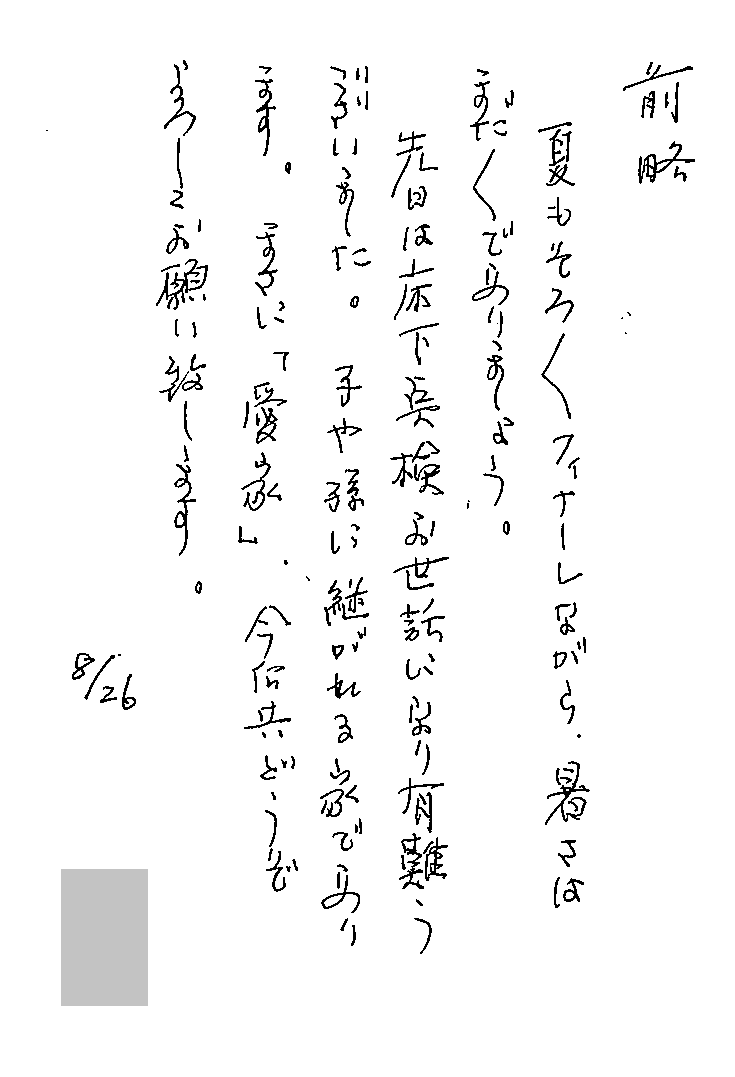 前略
夏もそろ〱フィナーレながら、暑さは
まだ〱でありましょう。
先日は床下点検お世話になり有難う
ございました。子や孫に継がれる家であり
ます。まさに「愛家」、今后共どうぞ
よろしくお願い致します。
8/26